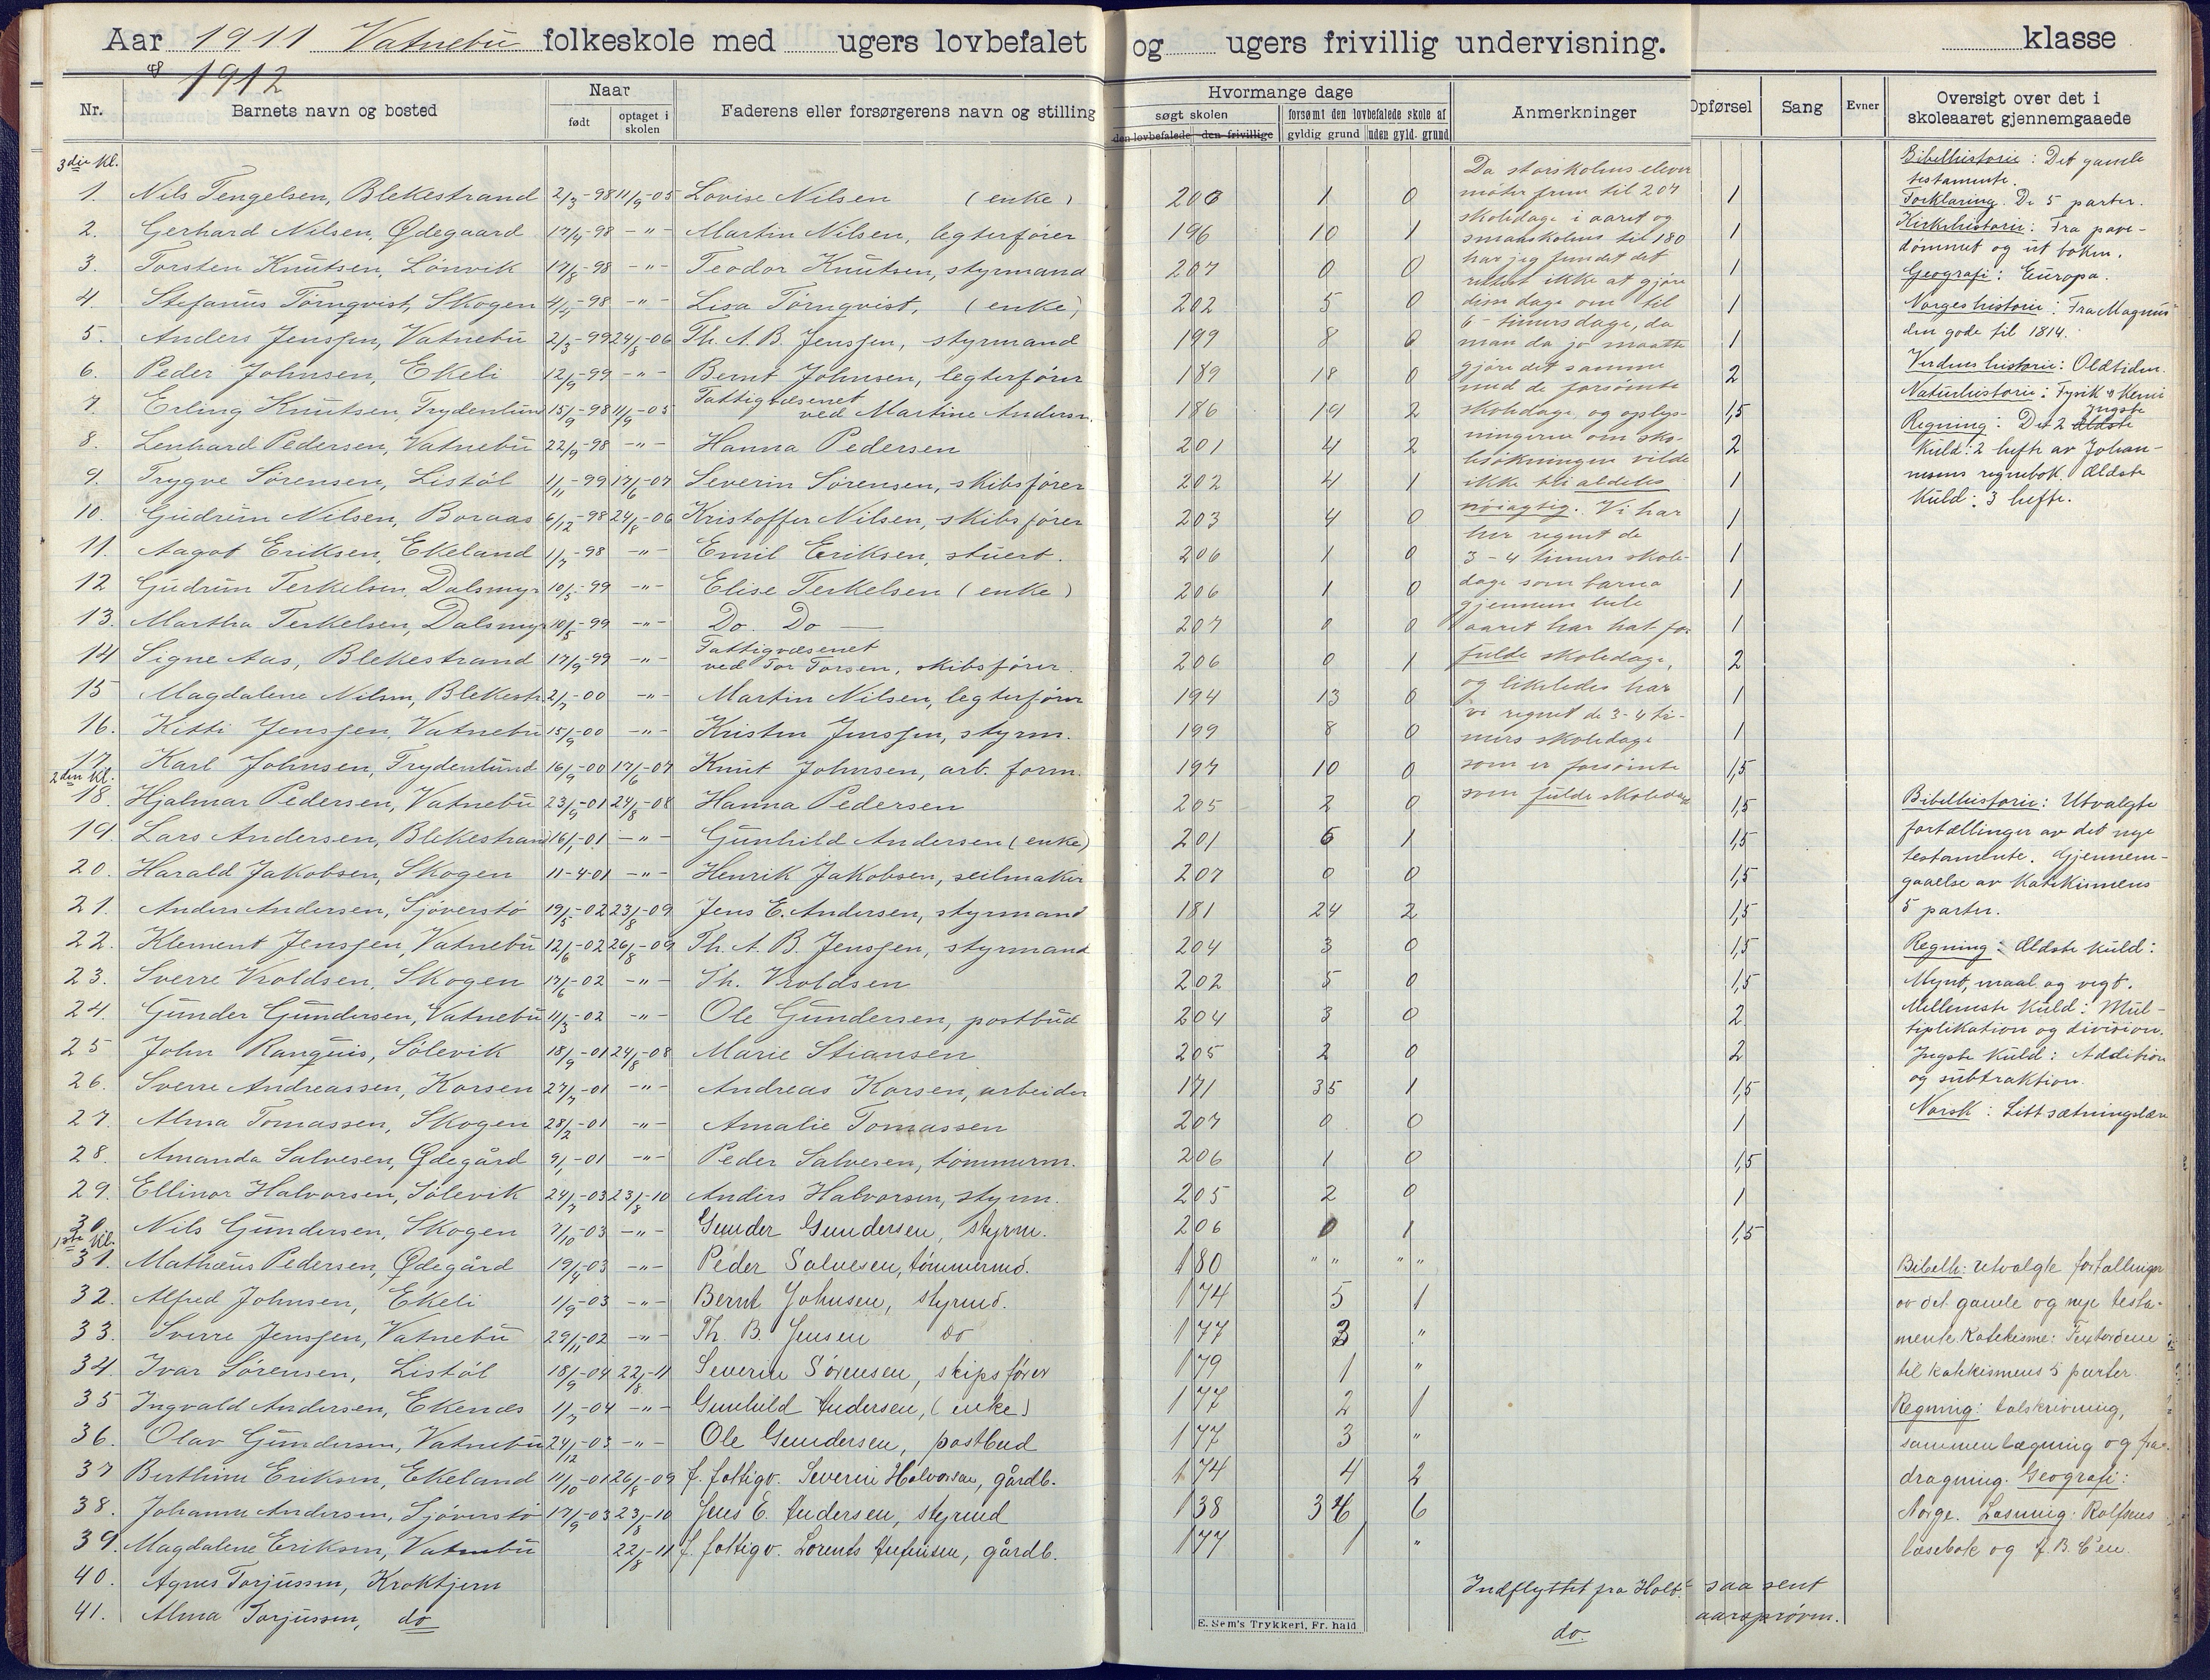 Aar 1911 Vatnebu folkeskole med ugers lovbefalet og ugers frivillig undervisning. klasse
& 1912
Nr. Barnets navn og bosted Naar født optaget i skolen Faderens eller forsørgerens navn og stilling Hvormange dage søgt skolen den lovbefalede den frivillige forsømt den lovbefalede skole af gyldig grund uden gyld. grund Anmerkninger Opførsel Sang Evner Oversigt over det i skoleaaret gjennemgaaede
3die Kl.
1. Nils Tengelsen, Blekestrand 2/3-98 11/9-05 Lovise Nilsen (enke) 206 1 0 1
2. Gerhard Nilsen, Ødegaard 17/4-98 -"- Martin Nilsen, legterfører 196 10 1 1
3. Torsten Knutsen, Lønvik 17/8-98 -"- Teodor Knutsen, styrmand 207 0 0 1
4. Stefanus Törnqvist, Skogen 4/4-98 -"- Lisa Törnqvist, (enke) 202 5 0 1
5. Anders Jenssen, Vatnebu 2/3-99 24/8-06 Th. A. B. Jenssen, styrmand 199 8 0 1
6. Peder Johnsen, Ekeli 12/9-99 -"- Bernt Johnsen, legterfører 189 18 0 2
7. Erling Knutsen, Frydenlund 15/9-98 11/9-05 Fattigvæsenet ved Martine Andersn. 186 19 2 1,5
8. Lenhard Pedersen, Vatnebu 22/9-98 -"- Hanna Pedersen 201 4 2 2
9. Trygve Sörensen, Listöl 1/11-99 17/6-07 Severin Sörensen, skibsfører 202 4 1 1
10. Gudrun Nilsen, Boraas 6/12-98 24/8-06 Kristoffer Nilsen, skibsfører 203 4 0 1
11. Aagot Eriksen, Ekeland 1/7-98 -"- Emil Eriksen, stuert. 206 1 0 1
12 Gudrun Terkelsen, Dalsmyr 10/5-99 -"- Elise Terkelsen (enke) 206 1 0 1
13. Martha Terkelsen, Dalsmyr 10/5-99 -"- Do Do — 207 0 0 1
14 Signe Aas, Blekestrand 17/9-99 -"- Fattigvæsenet ved Tor Torsen, skibsfører. 206 0 1 2
15 Magdalene Nilsen, Blekestr. 2/7-00 -"- Martin Nilsen, legterfører 194 13 0 1
16. Kitti Jenssen, Vatnebu 15/9-00 -"- Kristen Jenssen, styrm. 199 8 0 1
17. Karl Johnsen, Frydenlund 16/9-00 17/6-07 Knut Johnsen, arb. form. 197 10 0 1,5
2den Kl.
18. Hjalmar Pedersen, Vatnebu 23/9-01 24/8-08 Hanna Pedersen 205 2 0 1,5
19. Lars Andersen, Blekestrand 16/1-01 -"- Gunhild Andersen (enke) 201 6 1 1,5
20. Harald Jakobsen, Skogen 11-4-01 -"- Henrik Jakobsen, seilmaker 207 0 0 1,5
21. Anders Andersen, Sjöverstö 19/5-02 23/8-09 Jens E. Andersen, styrmand 181 24 2 1,5
22. Klement Jenssen, Vatnebu 12/6-02 26/8-09 Th. A. B. Jenssen, styrmand 204 3 0 1,5
23. Sverre Vroldsen, Skogen 17/6-02 -"- Th. Vroldsen 202 5 0 1,5
24. Gunder Gundersen, Vatnebu 11/3-02 -"- Ole Gundersen, postbud 204 3 0 2
25 John Ranquis, Sölevik 18/9-01 24/8-08 Marie Stiansen 205 2 0 2
26. Sverre Andreassen, Korsen 27/7-01 -"- Andreas Korsen, arbeider 171 35 1 1,5
27. Alma Tomassen, Skogen 28/2-01 -"- Amalie Tomassen 207 0 0 1
28. Amanda Salvesen, Ødegård 9/1-01 -"- Peder Salvesen, tömmerm. 206 1 0 1,5
29. Ellinor Halvorsen, Sölevik 24/7-03 23/8-10 Anders Halvorsen, styrm. 205 2 0 1
30. Nils Gundersen, Skogen 7/10-03 -"- Gunder Gundersen, styrm. 206 0 1 1,5
1ste Kl.
31. Mathæus Pedersen, Ødegård 19/4-03 -"- Peder Salvesen, tømmermd. 180 " " " "
32. Alfred Johnsen, Ekeli 1/9-03 -"- Bernt Johnsen, styrmd. 174 5 1
33. Sverre Jenssen, Vatnebu 29/11-02 -"- Th. B. Jensen do 177 3 "
34. Ivar Sörensen, Listöl 18/9-04 22/8-11 Severin Sørensen, skipsfører 179 1 "
35 Ingvald Andersen, Ekenæs 1/7-04 -"- Gunhild Andersen, (enke) 177 2 1
36. Olav Gundersen, Vatnebu 24/12-03 -"- Ole Gundersen, postbud 177 3 "
37 Berthine Eriksen, Ekeland 11/10-01 26/8-09 f. fattigv. Severin Halvorsen, gårdb. 174 4 2
38. Johanne Andersen, Sjöverstö 17/9-03 23/8-10 Jens E. Andersen, styrmd 138 36 6
39. Magdalene Eriksen, Vatnebu 22/8-11 f. fattigv. Lorents gårdb. 177 1 "
40. Agnes Torjussen, Kroktjern Indflyttet fra Holt saa sent aarsprøven.
41. Alma Torjussen, do do.
Da storskolens elever
møter frem til 207
skoledage i aaret og
smaaskolens til 180
har jeg fundet det
rettest ikke at gjøre
disse dage om til
6-timersdage, da
man da jo maatte
gjøre det samme
med de forsömte
skoledage, og oplys-
ningerne om sko-
lesökningen vilde
ikke bli aldeles
nöiagtig. Vi har
her regnet de
3-4 timers skole-
dage som barna
gjennem hele
aaret har hat for
fulde skoledage,
og likeledes har
vi regnet de 3-4 ti-
mers skoledage
som er forsömte
som fulde skoledage
Bibelhistorie: Det gamle
testamente.
Forklaring. De 5 parter.
Kirkehistorie: Fra pave-
dömmet og ut boken.
Geografi: Europa.
Norgeshistorie: Fra Magnus
den gode til 1814.
Verdenshistorie: Oldtiden.
Naturhistorie: Fysik & Kemi
Regning: De 2 ældste yngste
Kuld: 2 hefte av Johan-
nesens regnebok. Ældste
Kuld: 3 hefte.
Bibelhistorie: Utvalgte
fortællinger av det nye
testamente. Gjennem-
gaaelse av Katekismens
5 parter.
Regning: Ældste kuld:
Mynt, maal og vegt.
Mellemste Kuld: Mul-
tiplikation og division.
Yngste kuld: Addition
og subtraktion.
Norsk: Litt sætningslære
Bibelh: utvalgte fortællinger
av det gamle og nye testa-
mente. Katekisme: Textordene
til katekismens 5 parter.
Regning: talskrivning,
sammenlægning og fra-
dragning. Geografi:
Norge. Læsning: Rolfsens
læsebok og A.B.C'en.
E. Sem's Trykkeri, Fr. hald